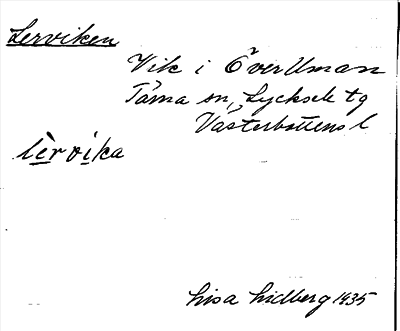 Lerviken
Vik i ÖverUman
Tärna sn, Lycksele tg
Västerbottens l
lèrvika
Lisa Lidberg 1935